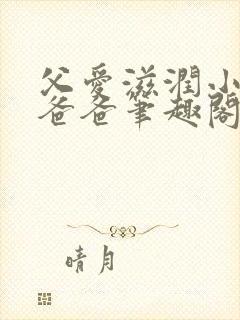 父愛滋潤小
爸爸筆趣閣
晴月